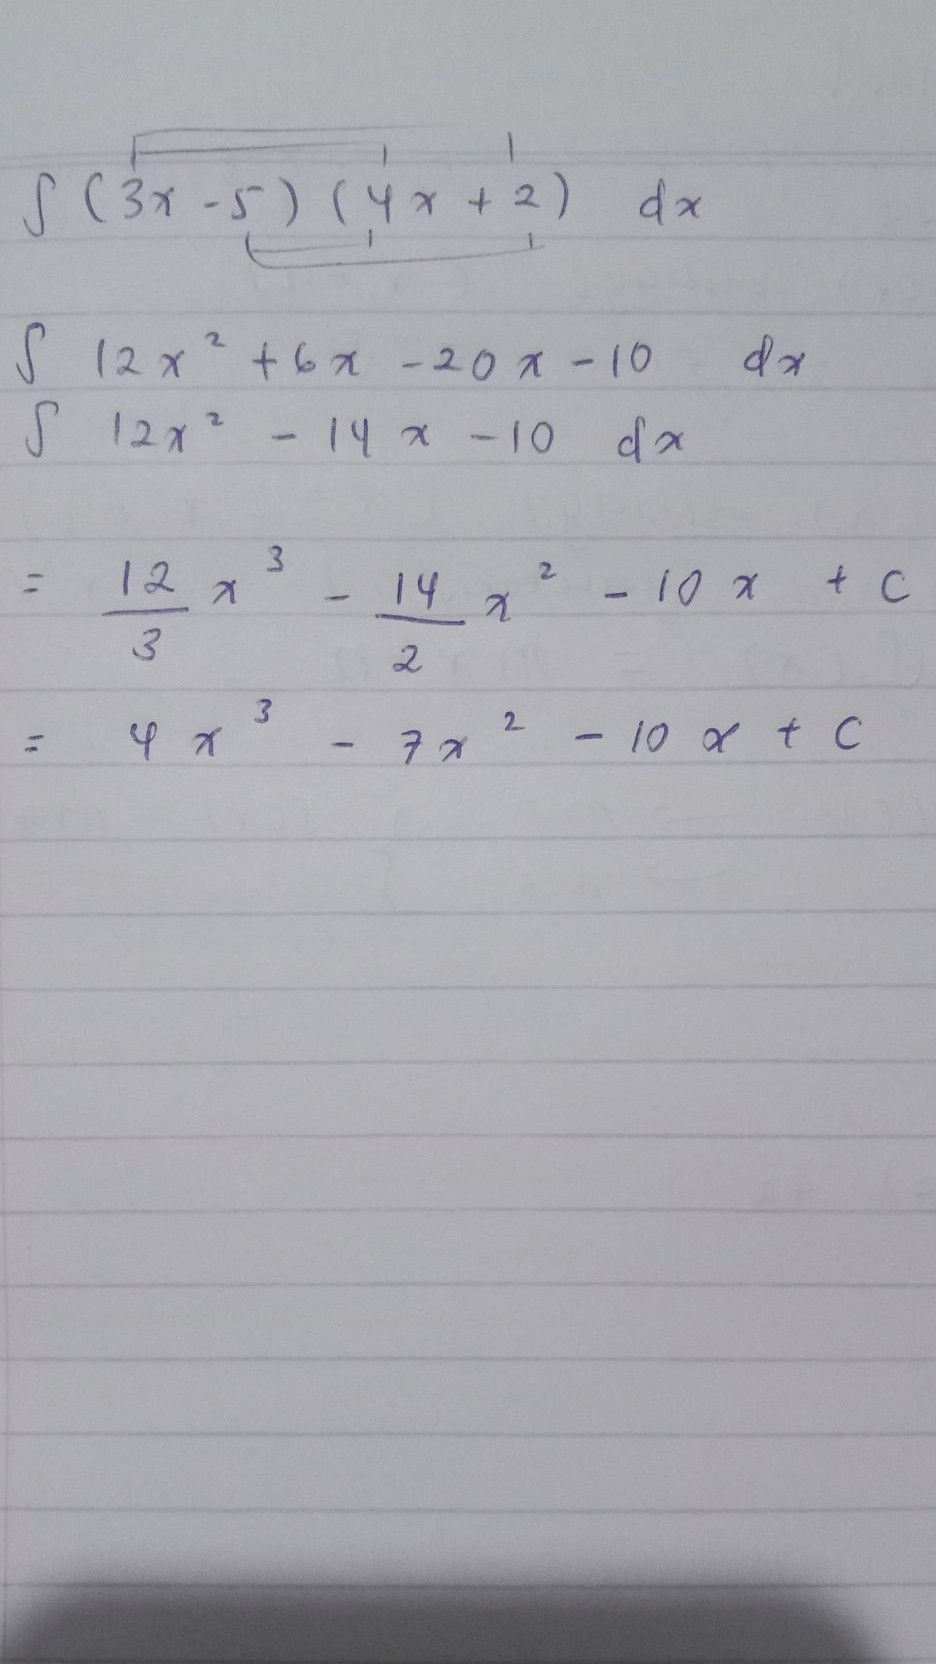 ∫ (3x - 5) (4x + 2) dx
∫ 12x² + 6x - 20x - 10 dx
∫ 12x² - 14x - 10 dx
= 12/3 x³ - 14/2 x² - 10x + C
= 4x³ - 7x² - 10x + C